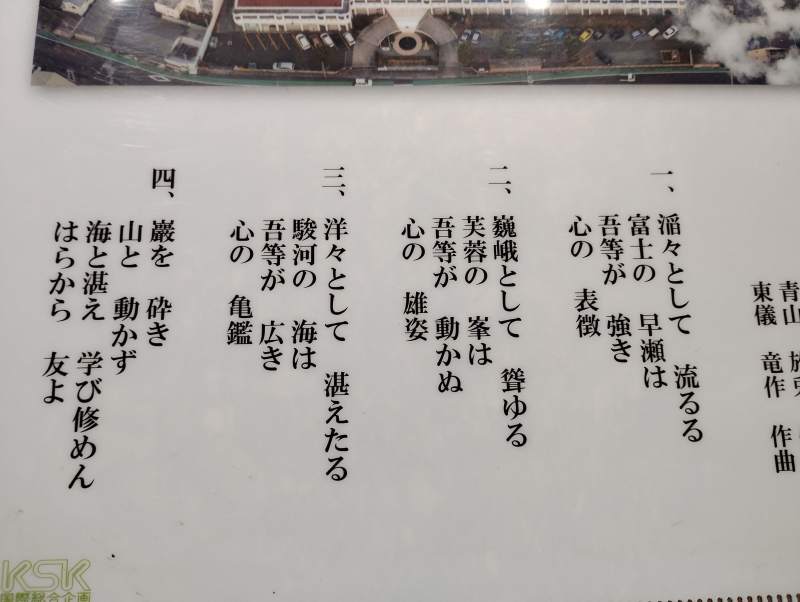 青山
東儀 竜作 作曲
一、滔々として 流るる
富士の 早瀬は
吾等が 強き
心の 表徴
二、巍峨として 聳ゆる
芙蓉の 峯は
吾等が 動かぬ
心の 雄姿
三、洋々として 湛えたる
駿河の 海は
吾等が 広き
心の 亀鑑
四、巌を 砕き
山と 動かず
海と湛え 学び修めん
はらから 友よ
KSK
国際総合企画